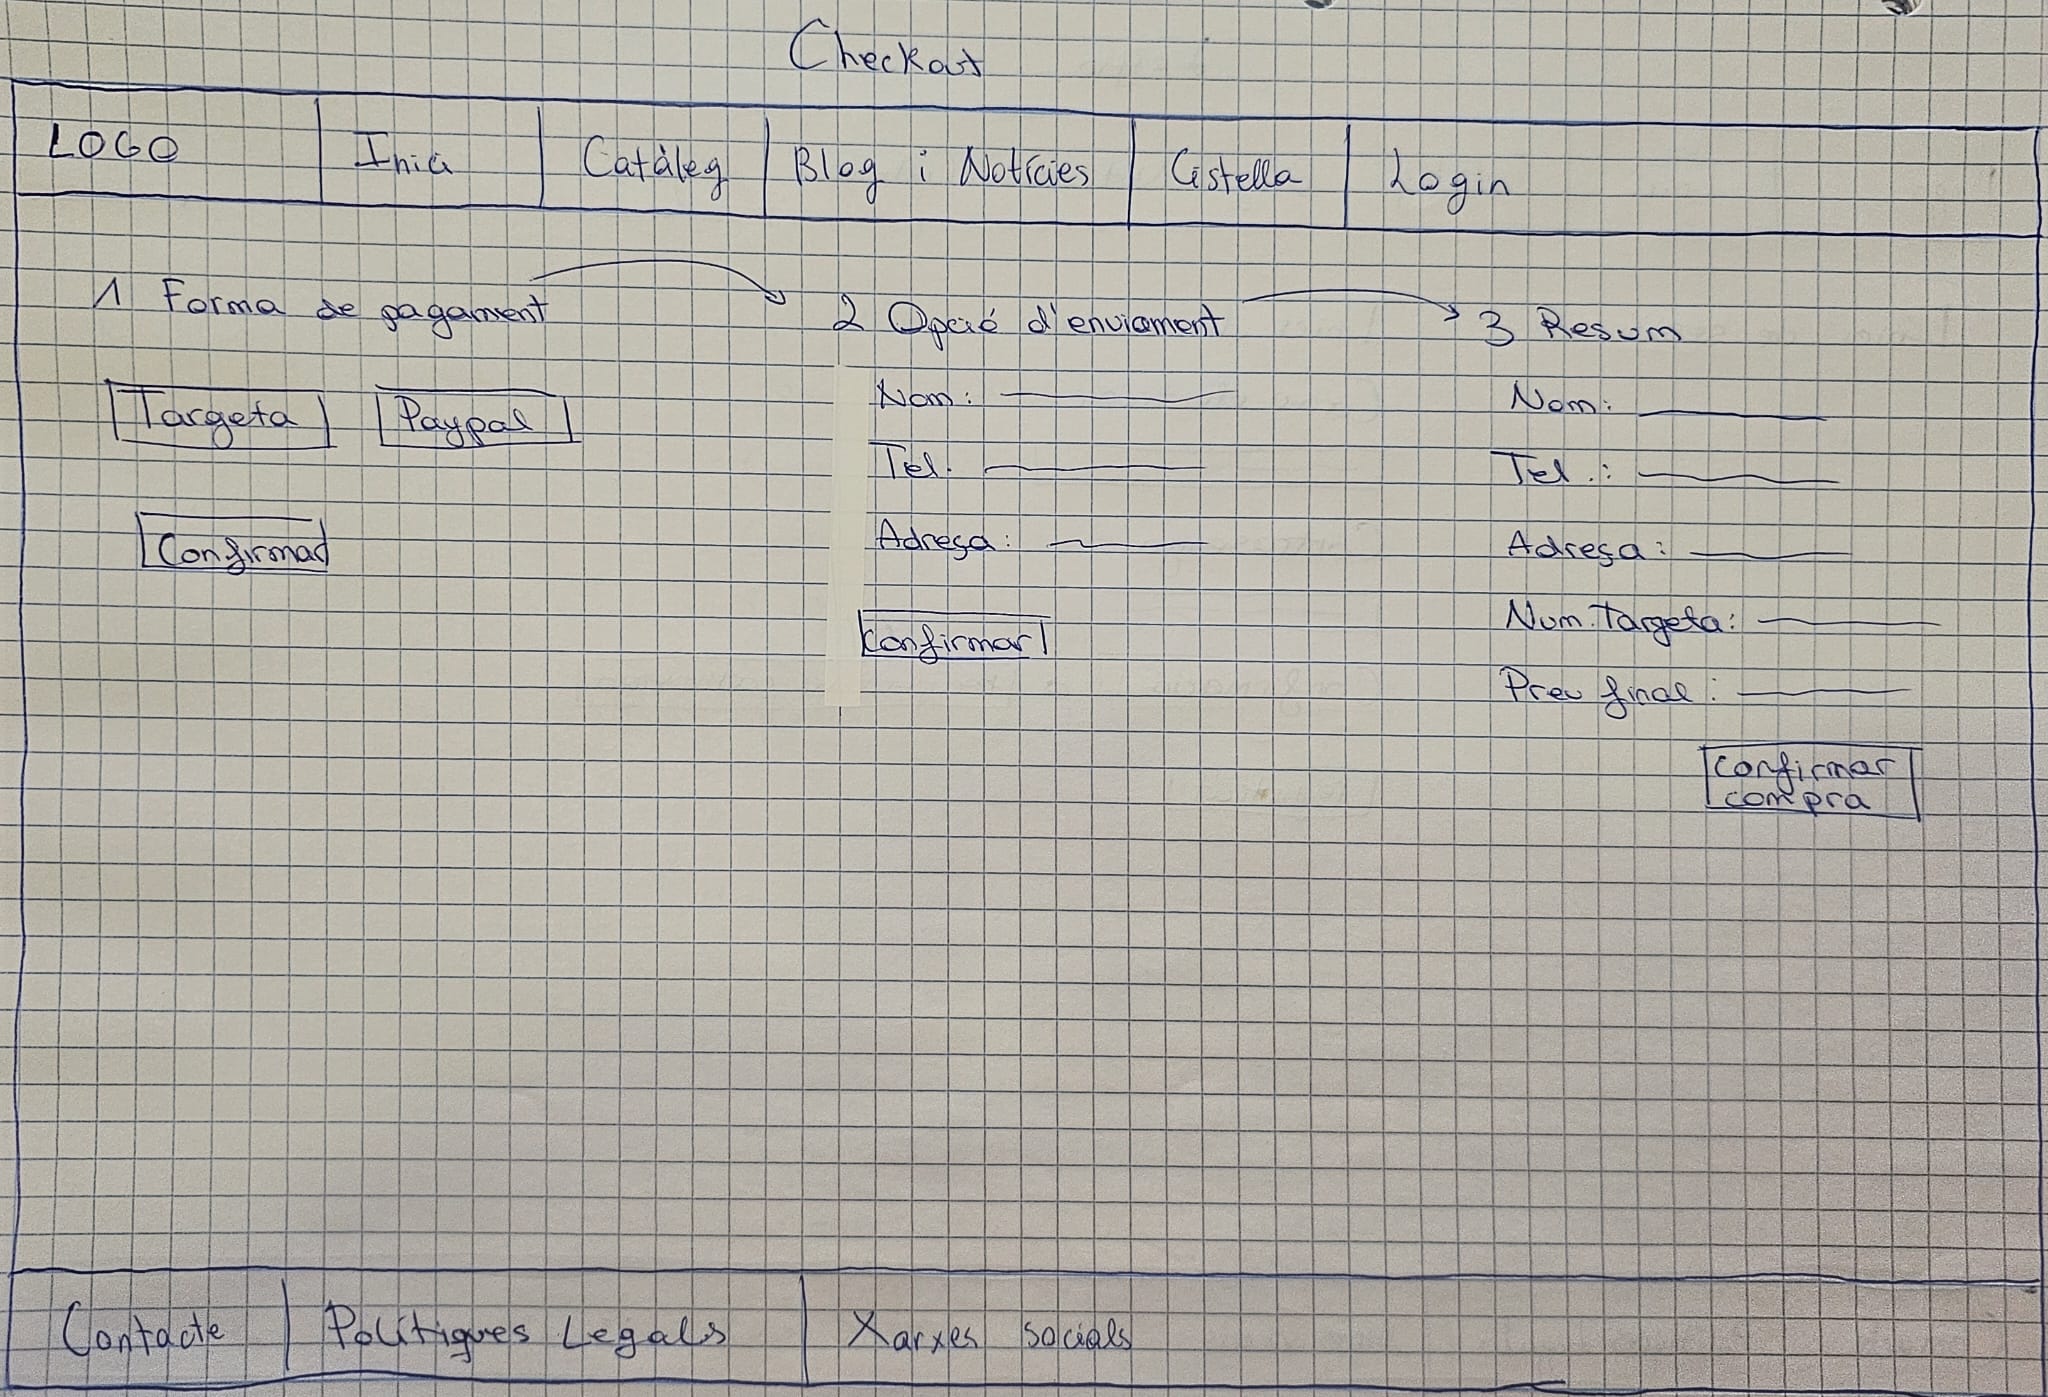 Checkout
LOGO Inici Catàleg Blog i Notícies Cistella Login
1 Forma de pagament
Targeta Paypal
Confirmar
2 Opció d'enviament
Nom:
Tel.
Adreça:
Confirmar
3 Resum
Nom:
Tel.:
Adreça:
Num. Targeta:
Preu final:
confirmar
compra
Contacte Polítiques Legals Xarxes socials